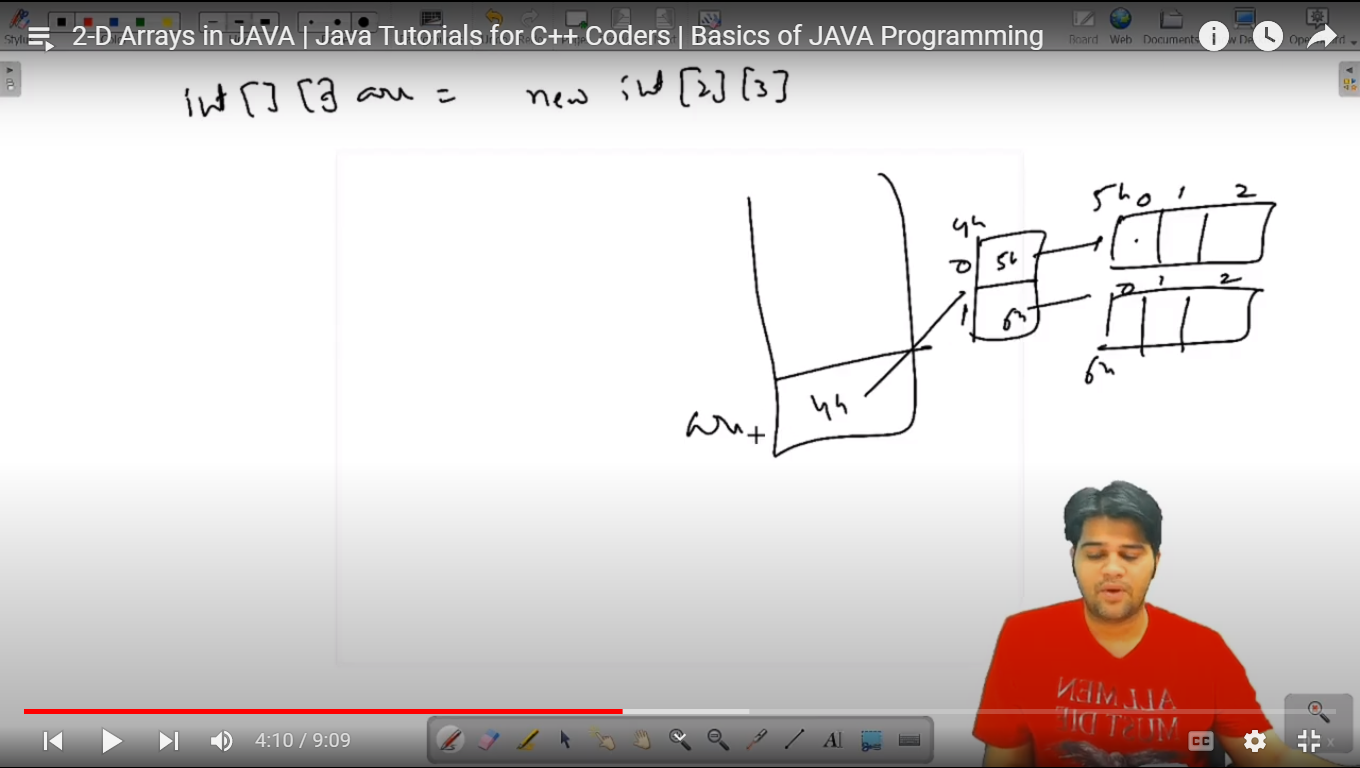 2-D Arrays in JAVA | Java Tutorials for C++ Coders | Basics of JAVA Programming
Board Web Documents
int[] [] arr = new int [2] [3]
5k 0 1 2
4k
0 5k
1 6k
0 1 2
6k
4k
arr
ALL MEN
MUST DIE
4:10 / 9:09
AI
CC